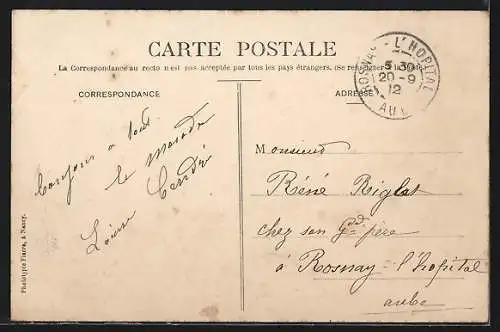 CARTE POSTALE
La Correspondance au recto n'est pas acceptée par tous les pays étrangers. (Se renseigner à la Poste)
ROSNAY-L'HOPITAL
5 30
20-9
12
AUBE
CORRESPONDANCE
ADRESSE
Bonjour a tout
le monde
Louise
Monsieur
Réné Riglet
chez son Gd père
à Rosnay-l'hopital
aube
Phototypie Pierra, à Nancy.